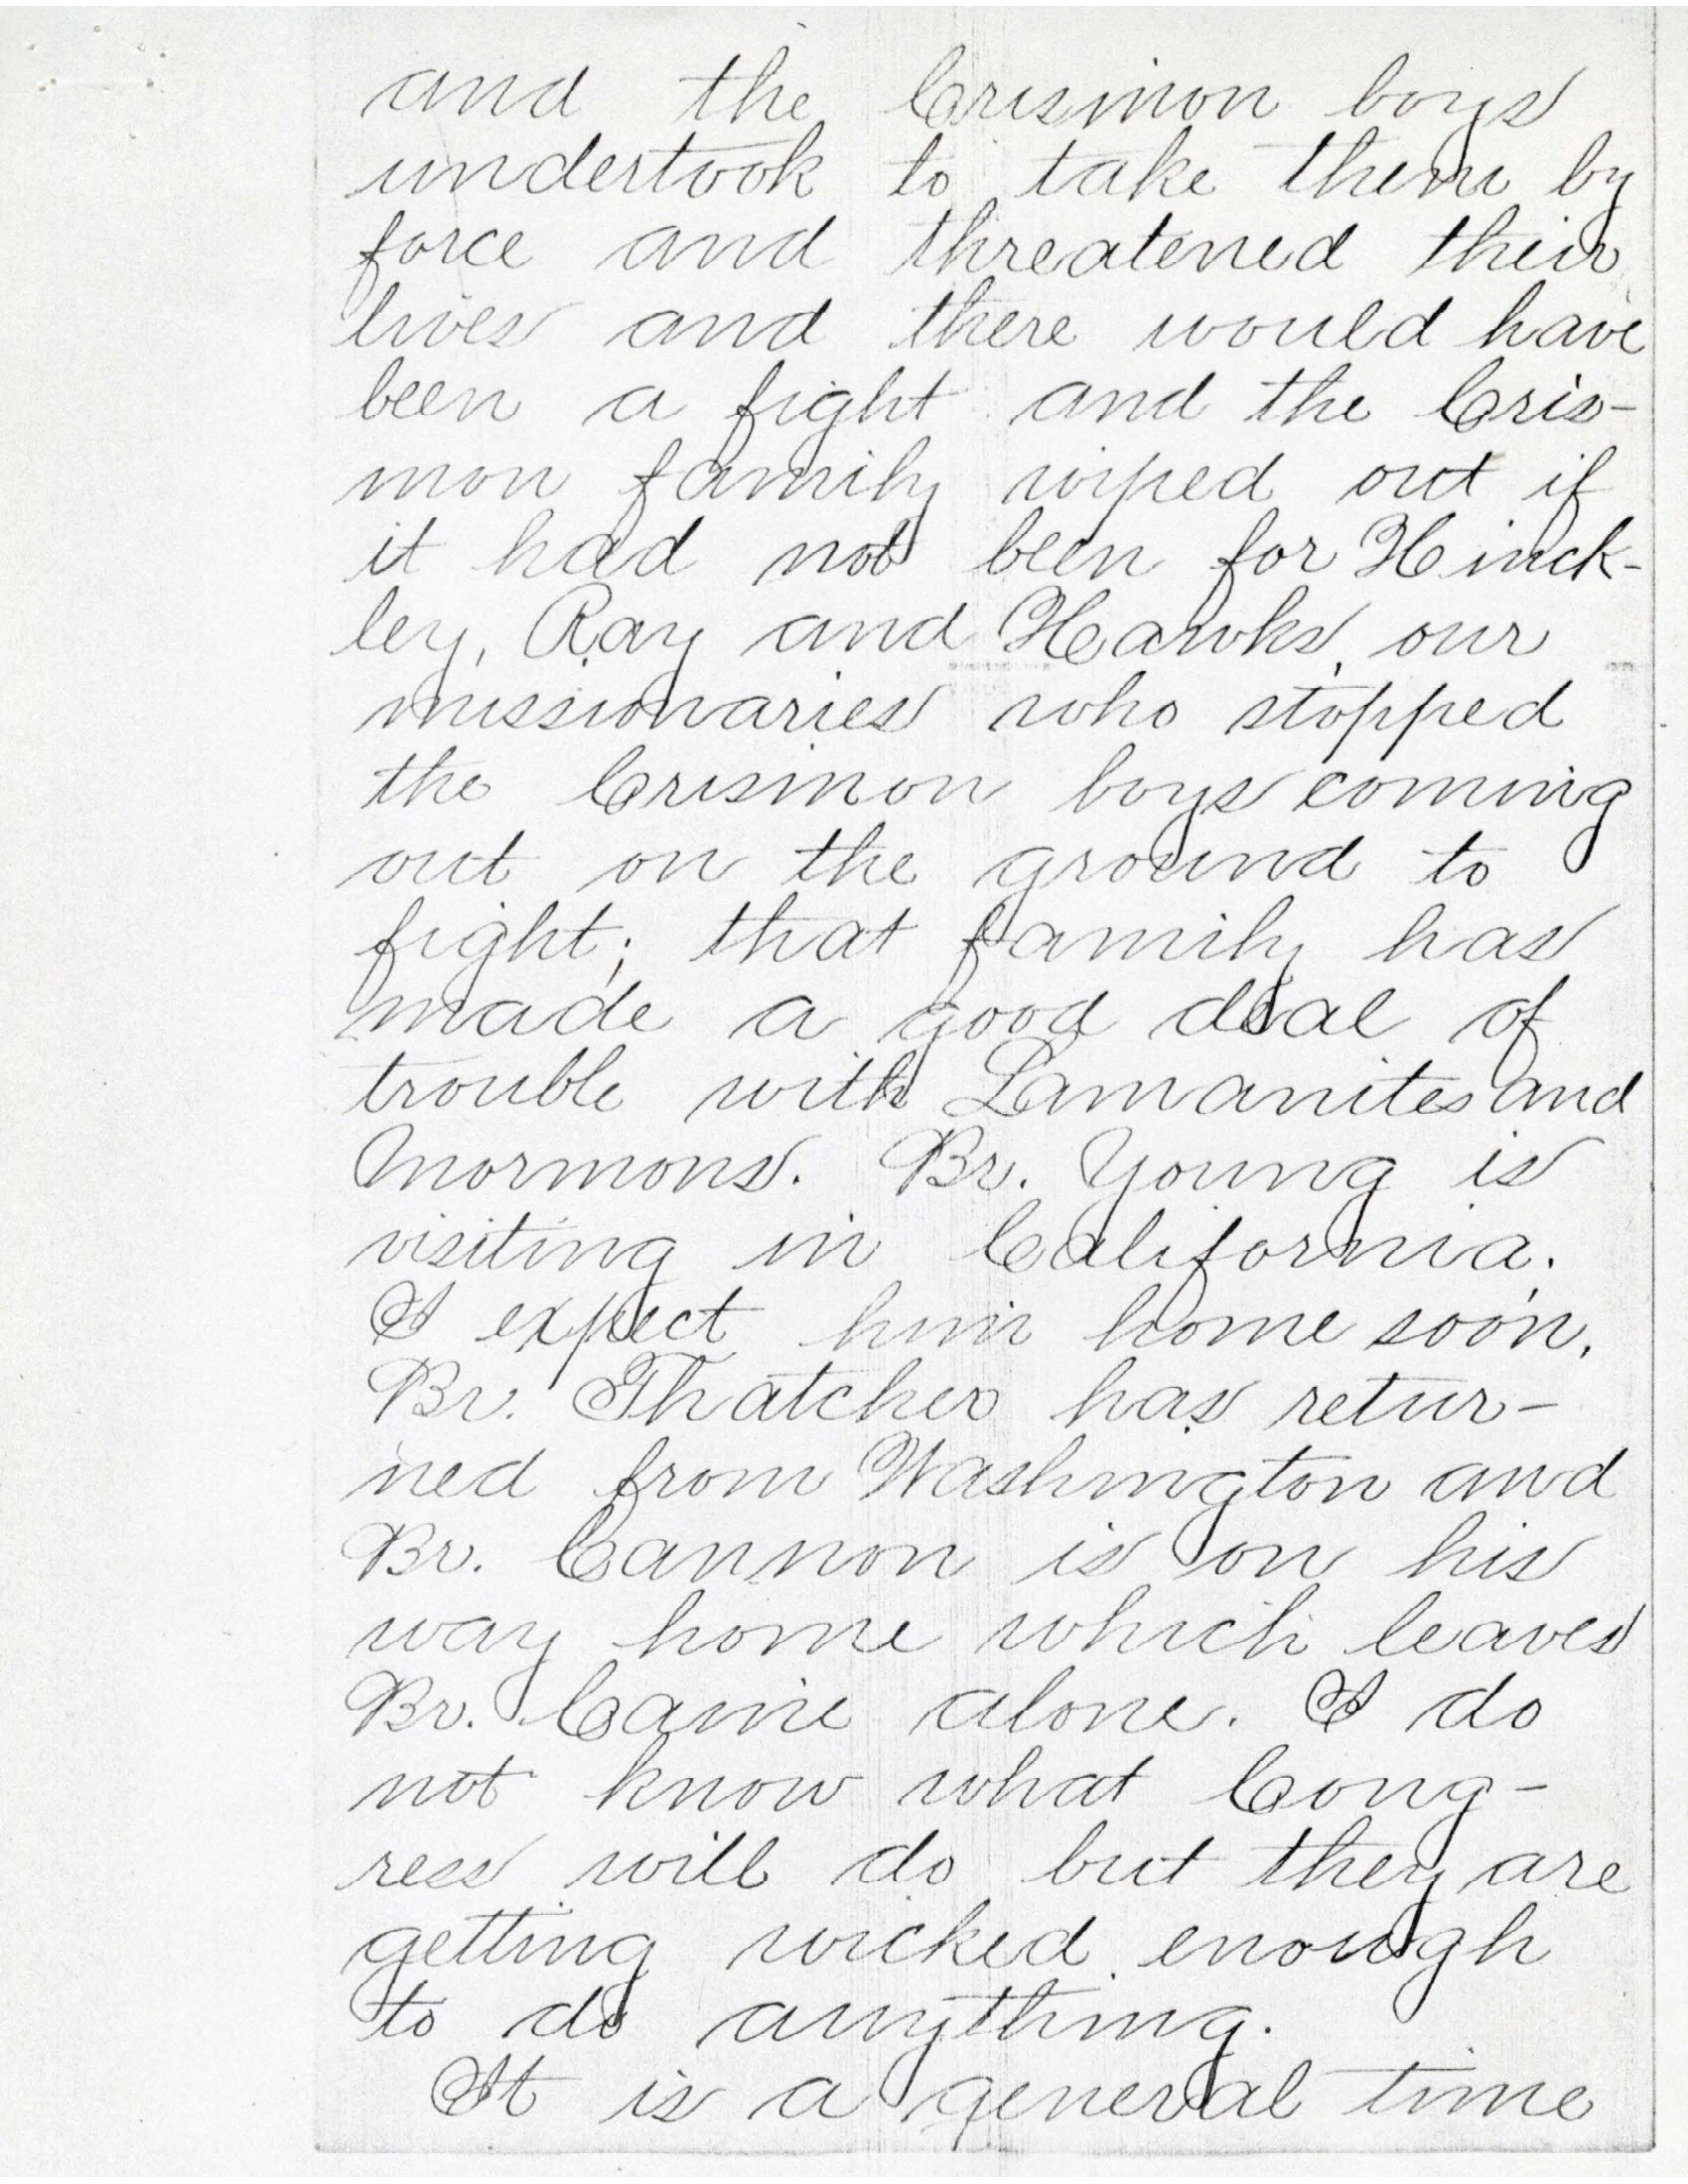 and the Crismon boys
undertook to take them by
force and threatened their
lives and there would have
been a fight and the Cris-
mon family wiped out if
it had not been for Hinck-
ley, Ray and Hawks, our
missionaries who stopped
the Crismon boys coming
out on the ground to
fight; that family has
made a good deal of
trouble with Lamanites and
Mormons. Br. Young is
visiting in California.
I expect him home soon.
Br. Thatcher has retur-
ned from Washington and
Br. Cannon is on his
way home which leaves
Br. Caine alone. I do
not know what Cong-
ress will do but they are
getting wicked enough
to do anything.
It is a general time